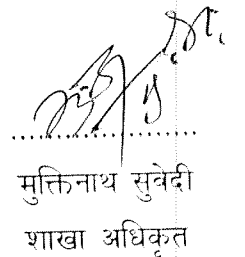 मुक्तिनाथ सुवेदी
शाखा अधिकृत